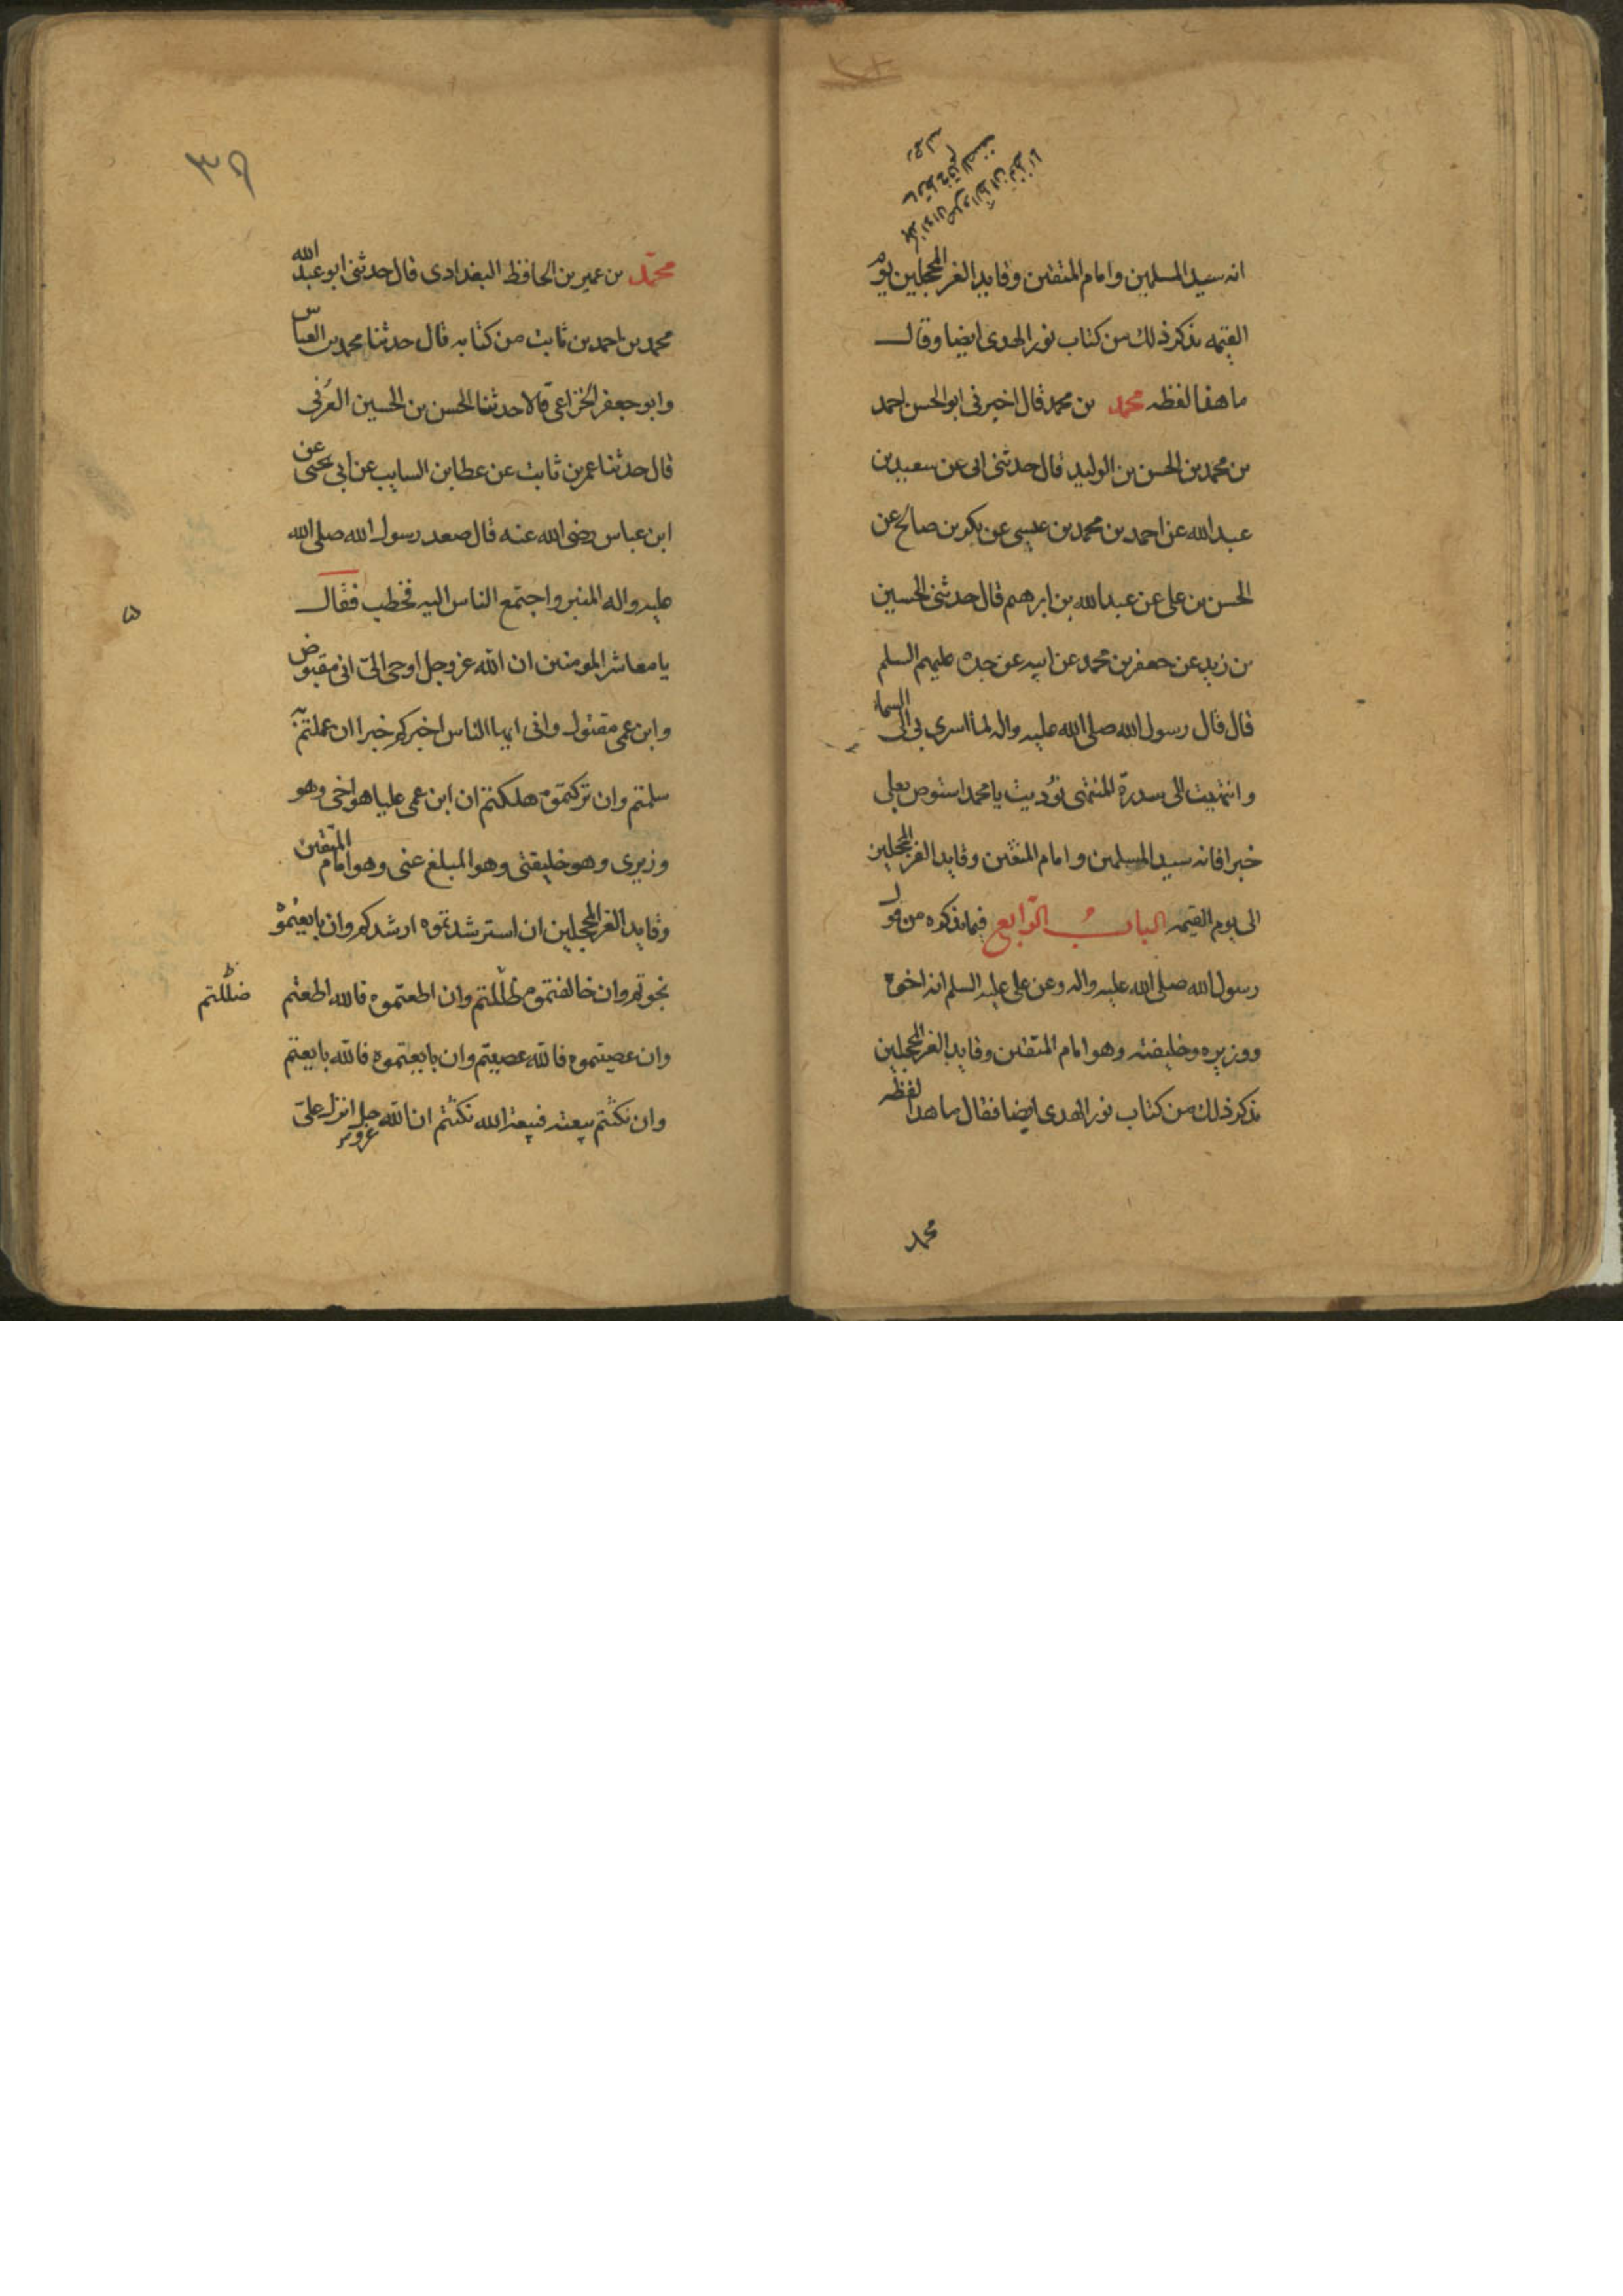 انه سيد المسلمين وامام المتقين وقايد الغر المحجلين يوم
القيمه نذكر ذلك من كتاب نور الهدى ايضا وقال
ما هذا لفظه محمد بن محمد قال اخبرنى ابو الحسن احمد
بن محمد بن الحسن بن الوليد قال حدثنى ابى عن سعيد بن
عبد الله عن احمد بن محمد بن عيسى عن بكر بن صالح عن
الحسن بن على عن عبد الله بن ابرهيم قال حدثنى الحسين
بن زيد عن جعفر بن محمد عن ابيه عن جده عليهم السلم
قال قال رسول الله صلى الله عليه واله لما اسرى بى الى السماء
وانتهيت الى سدرة المنتهى نوديت يا محمد استوص بعلى
خيرا فانه سيد المسلمين وامام المتقين وقايد الغر المحجلين
الى يوم القيمه الباب الرابع فيما نذكره من قول
رسول الله صلى الله عليه واله وعن على عليه السلم انه اخوه
ووزيره وخليفته وهو امام المتقين وقايد الغر المحجلين
نذكر ذلك من كتاب نور الهدى ايضا فقال ما هذا لفظه
محمد
٣٩
محمّد بن عمير بن الحافظ البغدادى قال حدثنى ابو عبد الله
محمد بن احمد بن ثابت من كتابه قال حدثنا محمد بن العباس
وابو جعفر الخزاعى قالا حدثنا الحسن بن الحسين العرنى
قال حدثنا عمر بن ثابت عن عطا بن السايب عن ابى يحيى عن
ابن عباس رضى الله عنه قال صعد رسول الله صلى الله
عليه واله المنبر واجتمع الناس اليه فخطب فقال
يا معاشر المومنين ان الله عز وجل اوحى الىّ انى مقبوض
وابن عمى مقتول وانى ايها الناس اخبركم خبرا ان عملتم به
سلمتم وان تركتموه هلكتم ان ابن عمى عليا هو اخى وهو
وزيرى وهو خليفتى وهو المبلغ عنى وهو امام المتّقين
وقايد الغر المحجلين ان استرشدتموه ارشدكم وان بايعتموه
نجوتم وان خالفتموه ظللتم وان اطعتموه فالله اطعتم
ضللتم
وان عصيتموه فالله عصيتم وان بايعتموه فالله بايعتم
وان نكثتم بيعته فبيعة الله نكثتم ان الله عز وجل انزل علىّ